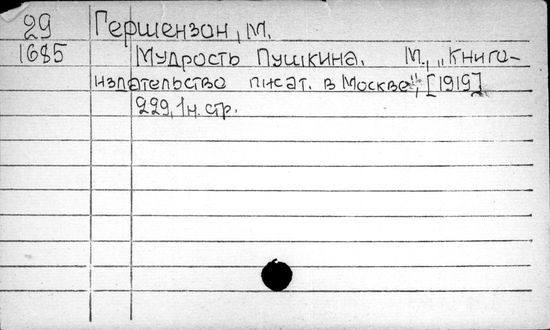 29 Гершензон, М.
1685 Мудрость Пушкина. М., „Книго-
издательство писат. в Москве", [1919]
229, 1 н. стр.